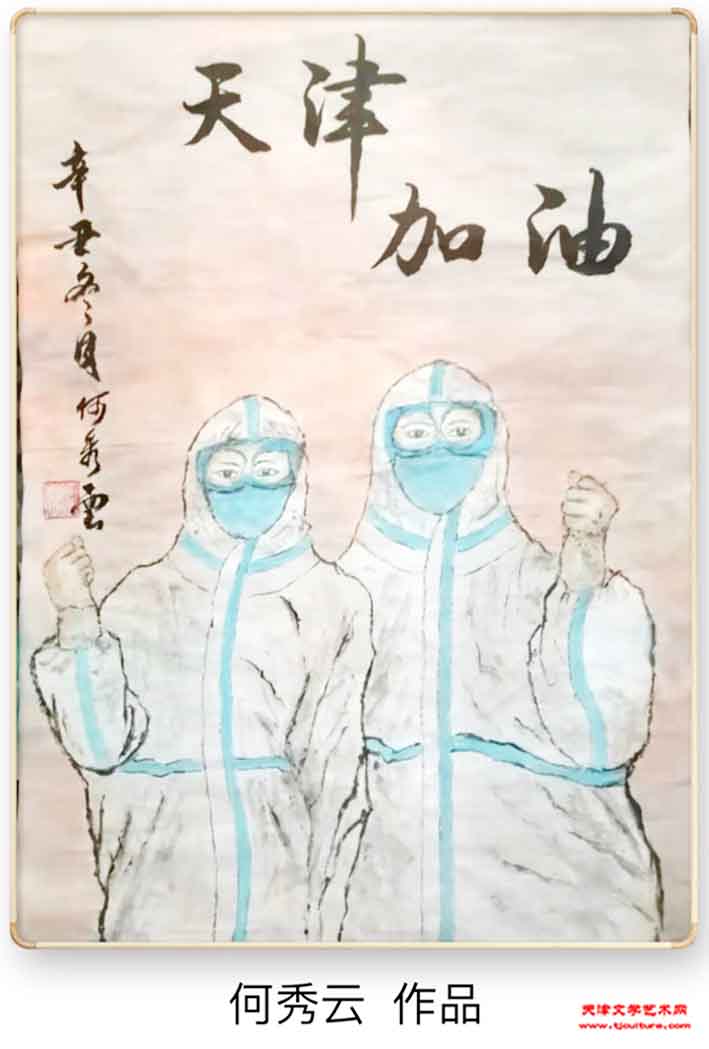 天津
加油
辛丑冬月何秀雲
何秀云 作品
天津文学艺术网
www.tjculture.com